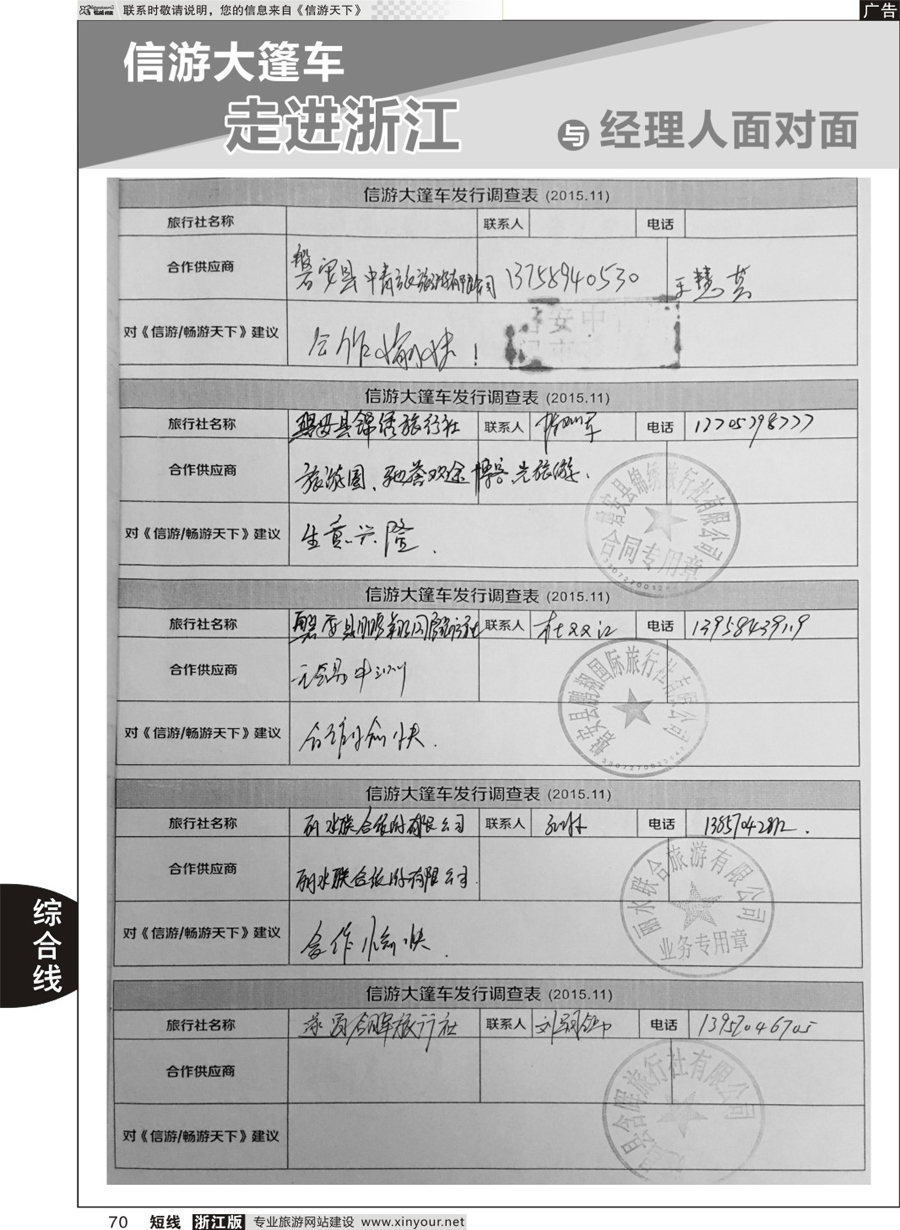 联系时敬请说明，您的信息来自《信游天下》
广告
信游大篷车
走进浙江
与 经理人面对面
信游大篷车发行调查表 (2015.11)
旅行社名称 联系人 电话
合作供应商 磐安县中青旅 有限公司 13758940530 王慧芸
对《信游/畅游天下》建议 合作愉快！
信游大篷车发行调查表 (2015.11)
旅行社名称 磐安县锦绣旅行社 联系人 电话
合作供应商 旅游圈、驰誉双途 博客 光旅游.
磐安县锦绣旅行社有限公司
合同专用章
对《信游/畅游天下》建议 生意兴隆.
信游大篷车发行调查表 (2015.11)
旅行社名称 磐安县鹏翔国际旅行社 联系人 杜双江 电话 13958439119
合作供应商
磐安县鹏翔国际旅行社有限公司
对《信游/畅游天下》建议 合作愉快.
信游大篷车发行调查表 (2015.11)
旅行社名称 丽水联合旅游有限公司 联系人 电话
合作供应商 丽水联合旅游有限公司.
丽水联合旅游有限公司
业务专用章
对《信游/畅游天下》建议 合作愉快.
信游大篷车发行调查表 (2015.11)
旅行社名称 旅行社 联系人 电话 13957046705
合作供应商
县合晖旅行社有限公司
对《信游/畅游天下》建议
综合线
70 短线 浙江版 专业旅游网站建设 www.xinyour.net